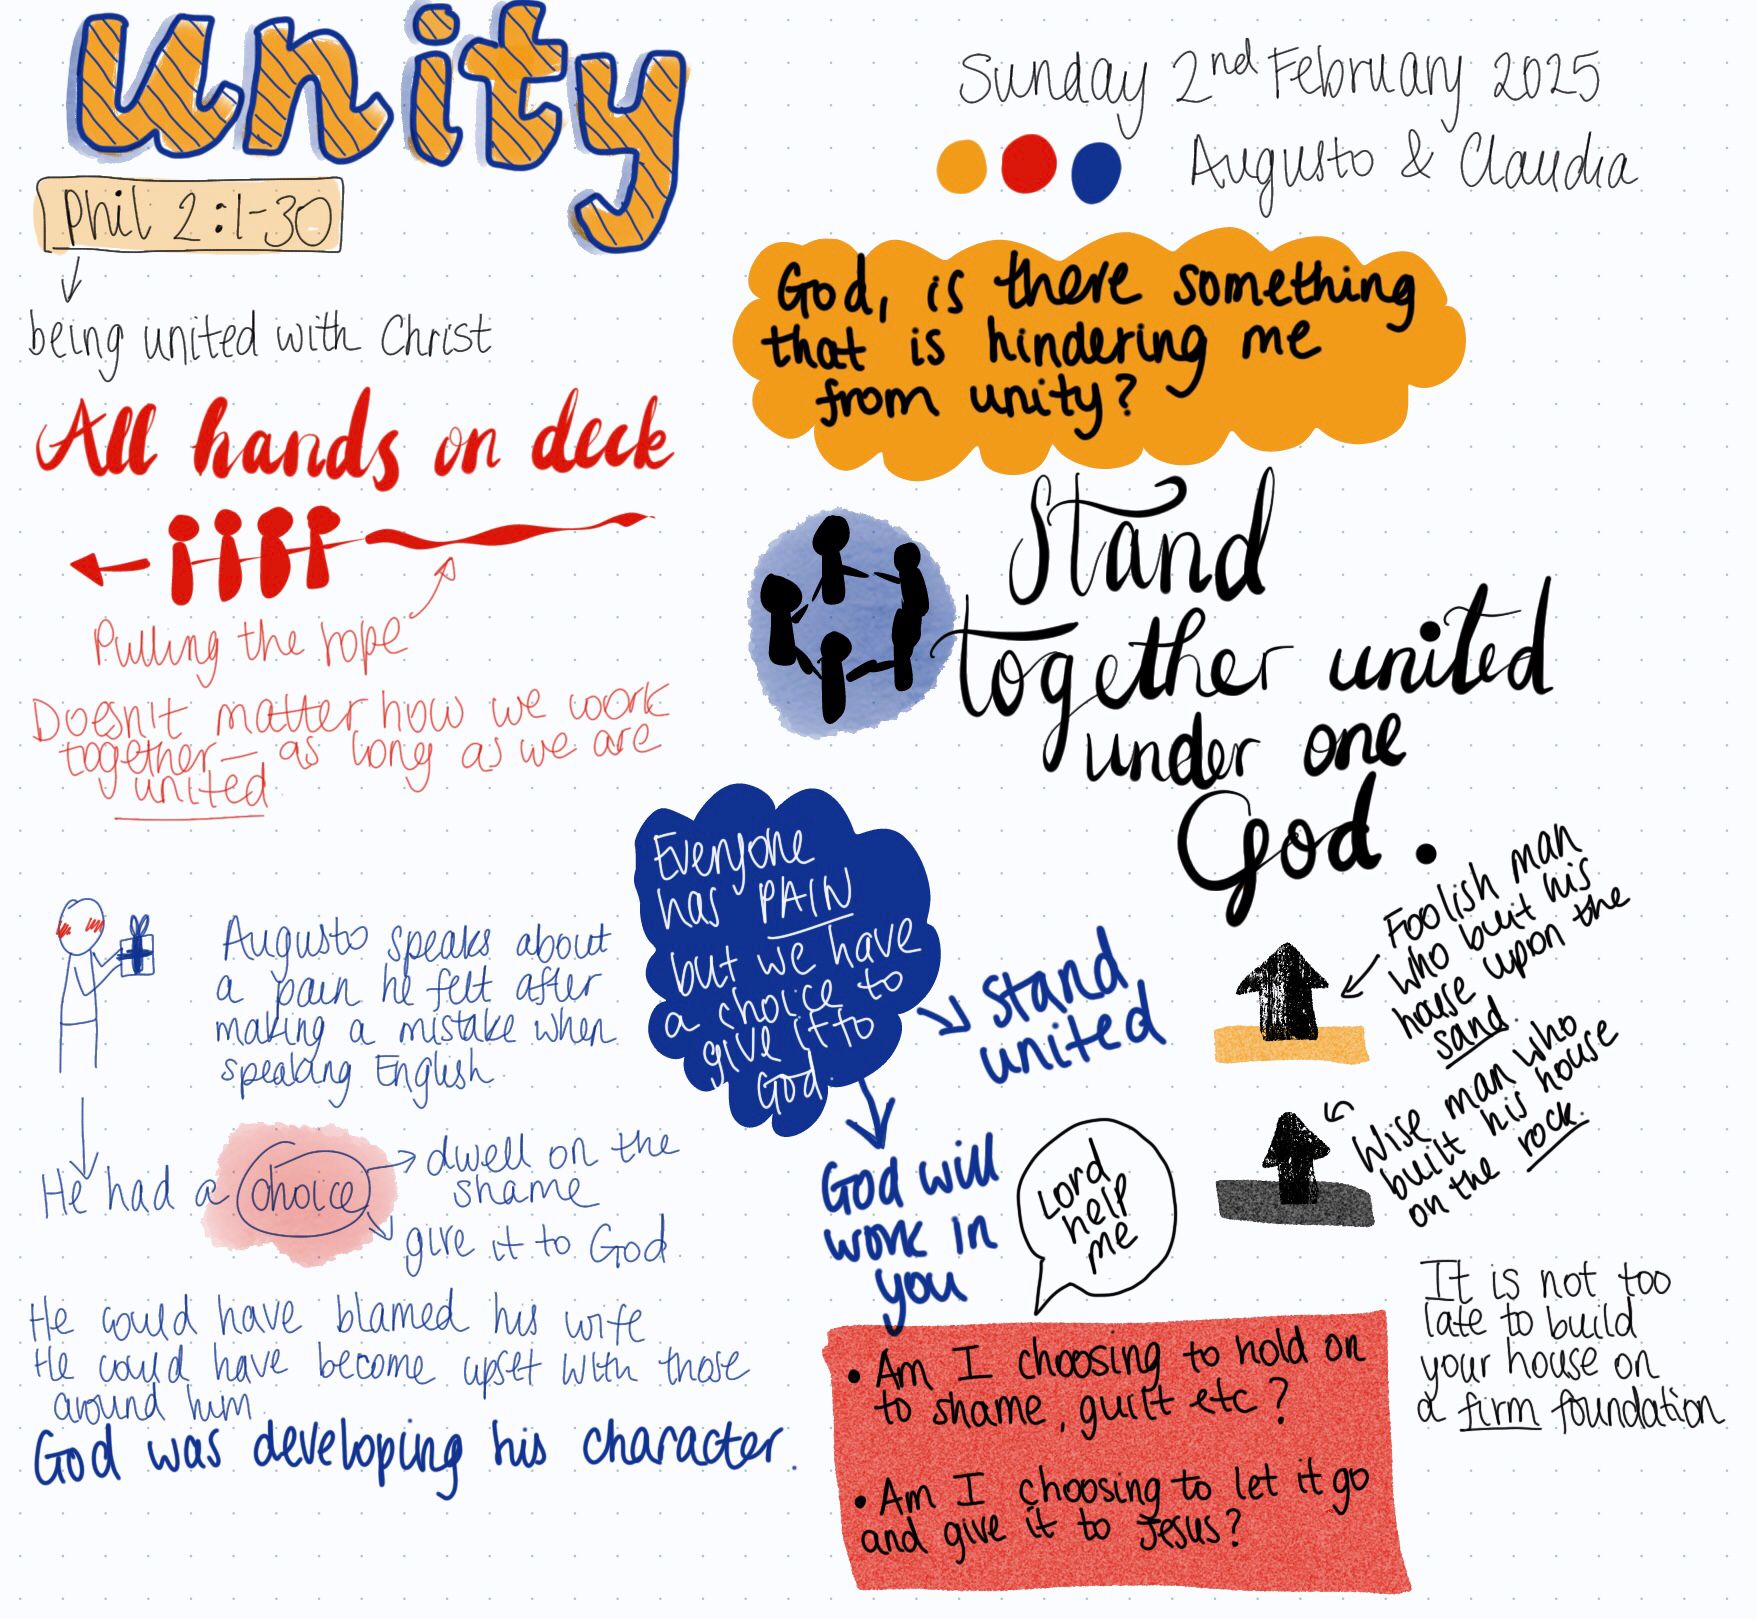 unity
Sunday 2nd February 2025
Augusto & Claudia
Phil 2:1-30
being united with Christ
All hands on deck
Pulling the rope
Doesn't matter how we work
together - as long as we are
united
God, is there something
that is hindering me
from unity?
Stand
together united
under one
God.
Everyone
has PAIN
but we have
a choice to
give it to
God.
stand
united
God will
work in
you
Augusto speaks about
a pain he felt after
making a mistake when
speaking English
He had a choice
dwell on the
shame
give it to God
He could have blamed his wife
He could have become upset with those
around him
God was developing his character.
Foolish man
who built his
house upon the
sand.
Wise man who
built his house
on the rock.
Lord
help
me
It is not too
late to build
your house on
a firm foundation
• Am I choosing to hold on
to shame, guilt etc?
• Am I choosing to let it go
and give it to Jesus?